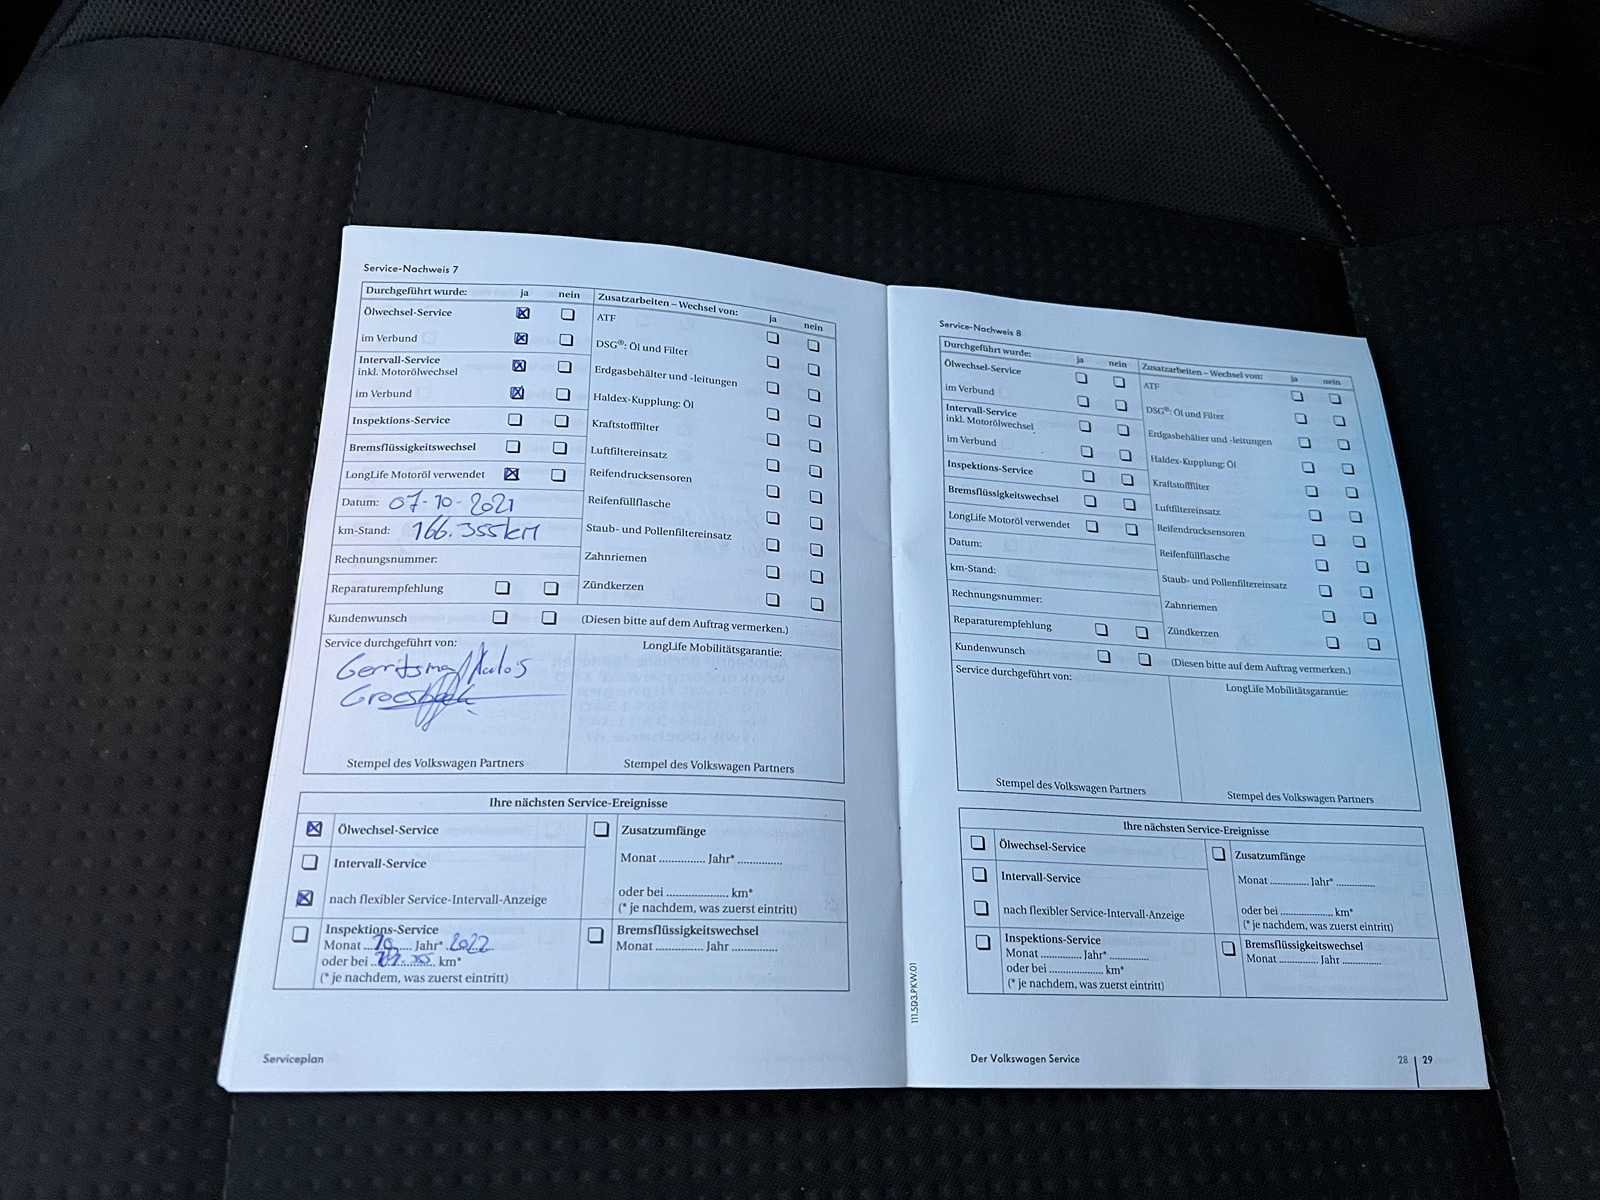 Service-Nachweis 7
Durchgeführt wurde: ja nein
Ölwechsel-Service
im Verbund
Intervall-Service
inkl. Motorölwechsel
im Verbund
Inspektions-Service
Bremsflüssigkeitswechsel
LongLife Motoröl verwendet
Datum: 07-10-2021
km-Stand: 166.355 km
Rechnungsnummer:
Reparaturempfehlung
Kundenwunsch
Zusatzarbeiten – Wechsel von: ja nein
ATF
DSG®: Öl und Filter
Erdgasbehälter und -leitungen
Haldex-Kupplung: Öl
Kraftstofffilter
Luftfiltereinsatz
Reifendrucksensoren
Reifenfüllflasche
Staub- und Pollenfiltereinsatz
Zahnriemen
Zündkerzen
(Diesen bitte auf dem Auftrag vermerken.)
Service durchgeführt von:
Gerritsma
Groesbeek
Stempel des Volkswagen Partners
LongLife Mobilitätsgarantie:
Stempel des Volkswagen Partners
Ihre nächsten Service-Ereignisse
Ölwechsel-Service
Intervall-Service
nach flexibler Service-Intervall-Anzeige
Inspektions-Service
Monat ...10... Jahr* 2022
oder bei .................... km*
(* je nachdem, was zuerst eintritt)
Zusatzumfänge
Monat .............. Jahr* ..............
oder bei .................... km*
(* je nachdem, was zuerst eintritt)
Bremsflüssigkeitswechsel
Monat .............. Jahr ..............
Serviceplan
Service-Nachweis 8
Durchgeführt wurde: ja nein
Ölwechsel-Service
im Verbund
Intervall-Service
inkl. Motorölwechsel
im Verbund
Inspektions-Service
Bremsflüssigkeitswechsel
LongLife Motoröl verwendet
Datum:
km-Stand:
Rechnungsnummer:
Reparaturempfehlung
Kundenwunsch
Zusatzarbeiten – Wechsel von: ja nein
ATF
DSG®: Öl und Filter
Erdgasbehälter und -leitungen
Haldex-Kupplung: Öl
Kraftstofffilter
Luftfiltereinsatz
Reifendrucksensoren
Reifenfüllflasche
Staub- und Pollenfiltereinsatz
Zahnriemen
Zündkerzen
(Diesen bitte auf dem Auftrag vermerken.)
Service durchgeführt von:
Stempel des Volkswagen Partners
LongLife Mobilitätsgarantie:
Stempel des Volkswagen Partners
Ihre nächsten Service-Ereignisse
Ölwechsel-Service
Intervall-Service
nach flexibler Service-Intervall-Anzeige
Inspektions-Service
Monat .............. Jahr* ..............
oder bei .................... km*
(* je nachdem, was zuerst eintritt)
Zusatzumfänge
Monat .............. Jahr* ..............
oder bei .................... km*
(* je nachdem, was zuerst eintritt)
Bremsflüssigkeitswechsel
Monat .............. Jahr ..............
111.5D3.PKW.01
Der Volkswagen Service
28 | 29